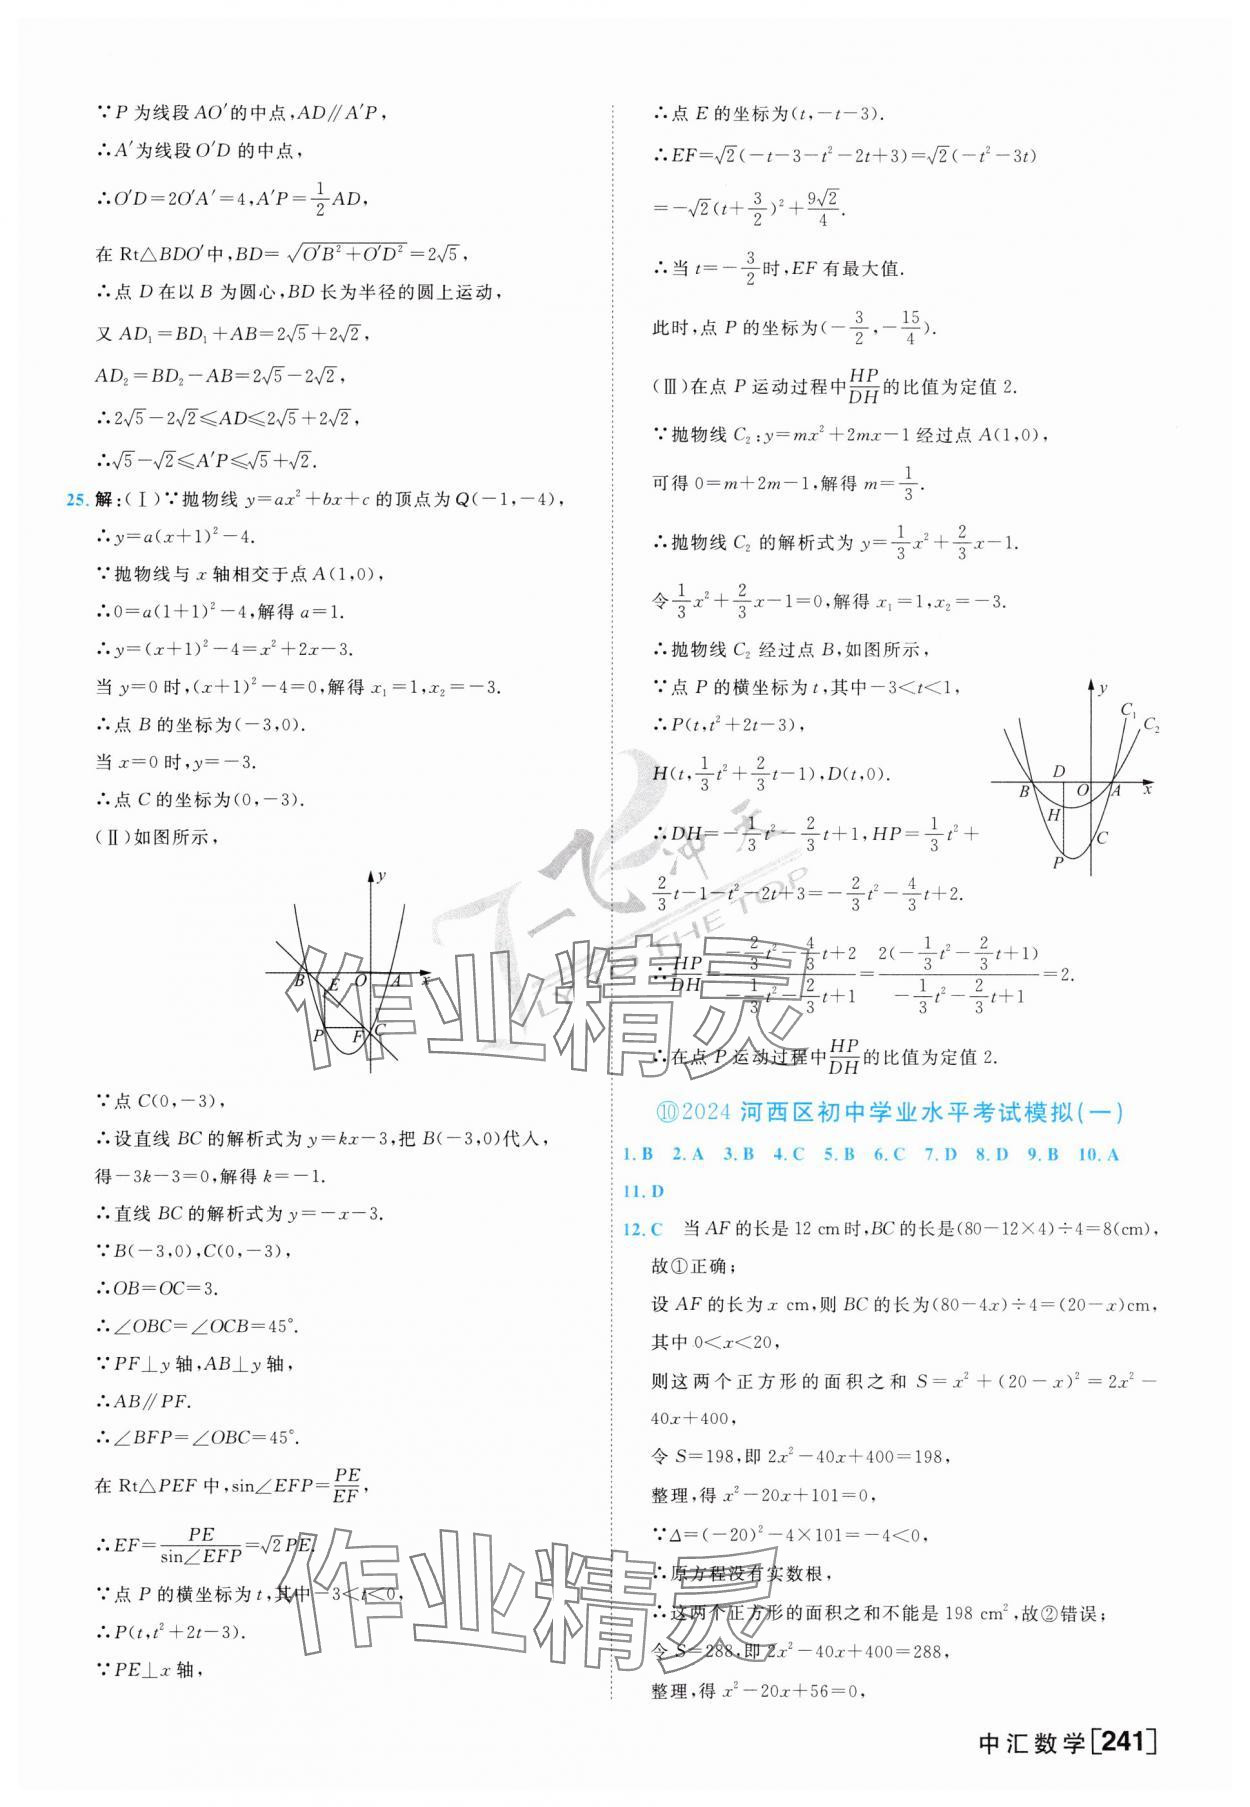 ∵P 为线段 AO′的中点,AD∥A′P,
∴A′为线段 O′D 的中点,
∴O′D=2O′A′=4,A′P=1/2AD,
在 Rt△BDO′中,BD=√(O′B²+O′D²)=2√5,
∴点 D 在以 B 为圆心,BD 长为半径的圆上运动,
又 AD₁=BD₁+AB=2√5+2√2,
AD₂=BD₂-AB=2√5-2√2,
∴2√5-2√2≤AD≤2√5+2√2,
∴√5-√2≤A′P≤√5+√2.
25. 解:(Ⅰ)∵抛物线 y=ax²+bx+c 的顶点为 Q(-1,-4),
∴y=a(x+1)²-4.
∵抛物线与 x 轴相交于点 A(1,0),
∴0=a(1+1)²-4,解得 a=1.
∴y=(x+1)²-4=x²+2x-3.
当 y=0 时,(x+1)²-4=0,解得 x₁=1,x₂=-3.
∴点 B 的坐标为(-3,0).
当 x=0 时,y=-3.
∴点 C 的坐标为(0,-3).
(Ⅱ)如图所示,
y
B E O A x
P F C
∵点 C(0,-3),
∴设直线 BC 的解析式为 y=kx-3,把 B(-3,0)代人,
得-3k-3=0,解得 k=-1.
∴直线 BC 的解析式为 y=-x-3.
∵B(-3,0),C(0,-3),
∴OB=OC=3.
∴∠OBC=∠OCB=45°.
∵PF⊥y 轴,AB⊥y 轴,
∴AB∥PF.
∴∠BFP=∠OBC=45°.
在 Rt△PEF 中,sin∠EFP=PE/EF,
∴EF=PE/sin∠EFP=√2PE.
∵点 P 的横坐标为 t,其中-3<t<0,
∴P(t,t²+2t-3).
∵PE⊥x 轴,
∴点 E 的坐标为(t,-t-3).
∴EF=√2(-t-3-t²-2t+3)=√2(-t²-3t)
=-√2(t+3/2)²+9√2/4.
∴当 t=-3/2时,EF 有最大值.
此时,点 P 的坐标为(-3/2,-15/4).
(Ⅲ)在点 P 运动过程中HP/DH的比值为定值 2.
∵抛物线 C₂:y=mx²+2mx-1 经过点 A(1,0),
可得 0=m+2m-1,解得 m=1/3.
∴抛物线 C₂ 的解析式为 y=1/3x²+2/3x-1.
令1/3x²+2/3x-1=0,解得 x₁=1,x₂=-3.
∴抛物线 C₂ 经过点 B,如图所示,
∵点 P 的横坐标为 t,其中-3<t<1,
∴P(t,t²+2t-3),
H(t,1/3t²+2/3t-1),D(t,0).
∴DH=-1/3t²-2/3t+1,HP=1/3t²+
2/3t-1-t²-2t+3=-2/3t²-4/3t+2.
y
C₁
C₂
D
B O A x
H
C
P
∴HP/DH=(-2/3t²-4/3t+2)/(-1/3t²-2/3t+1)=2(-1/3t²-2/3t+1)/(-1/3t²-2/3t+1)=2.
∴在点 P 运动过程中HP/DH的比值为定值 2.
⑩2024 河西区初中学业水平考试模拟(一)
1. B 2. A 3. B 4. C 5. B 6. C 7. D 8. D 9. B 10. A
11. D
12. C 当 AF 的长是 12 cm 时,BC 的长是(80-12×4)÷4=8(cm),
故①正确;
设 AF 的长为 x cm,则 BC 的长为(80-4x)÷4=(20-x)cm,
其中 0<x<20,
则这两个正方形的面积之和 S=x²+(20-x)²=2x²-
40x+400,
令 S=198,即 2x²-40x+400=198,
整理,得 x²-20x+101=0,
∵Δ=(-20)²-4×101=-4<0,
∴原方程没有实数根,
∴这两个正方形的面积之和不能是 198 cm²,故②错误;
令 S=288,即 2x²-40x+400=288,
整理,得 x²-20x+56=0,
中汇数学[241]
作业精灵
作业精灵